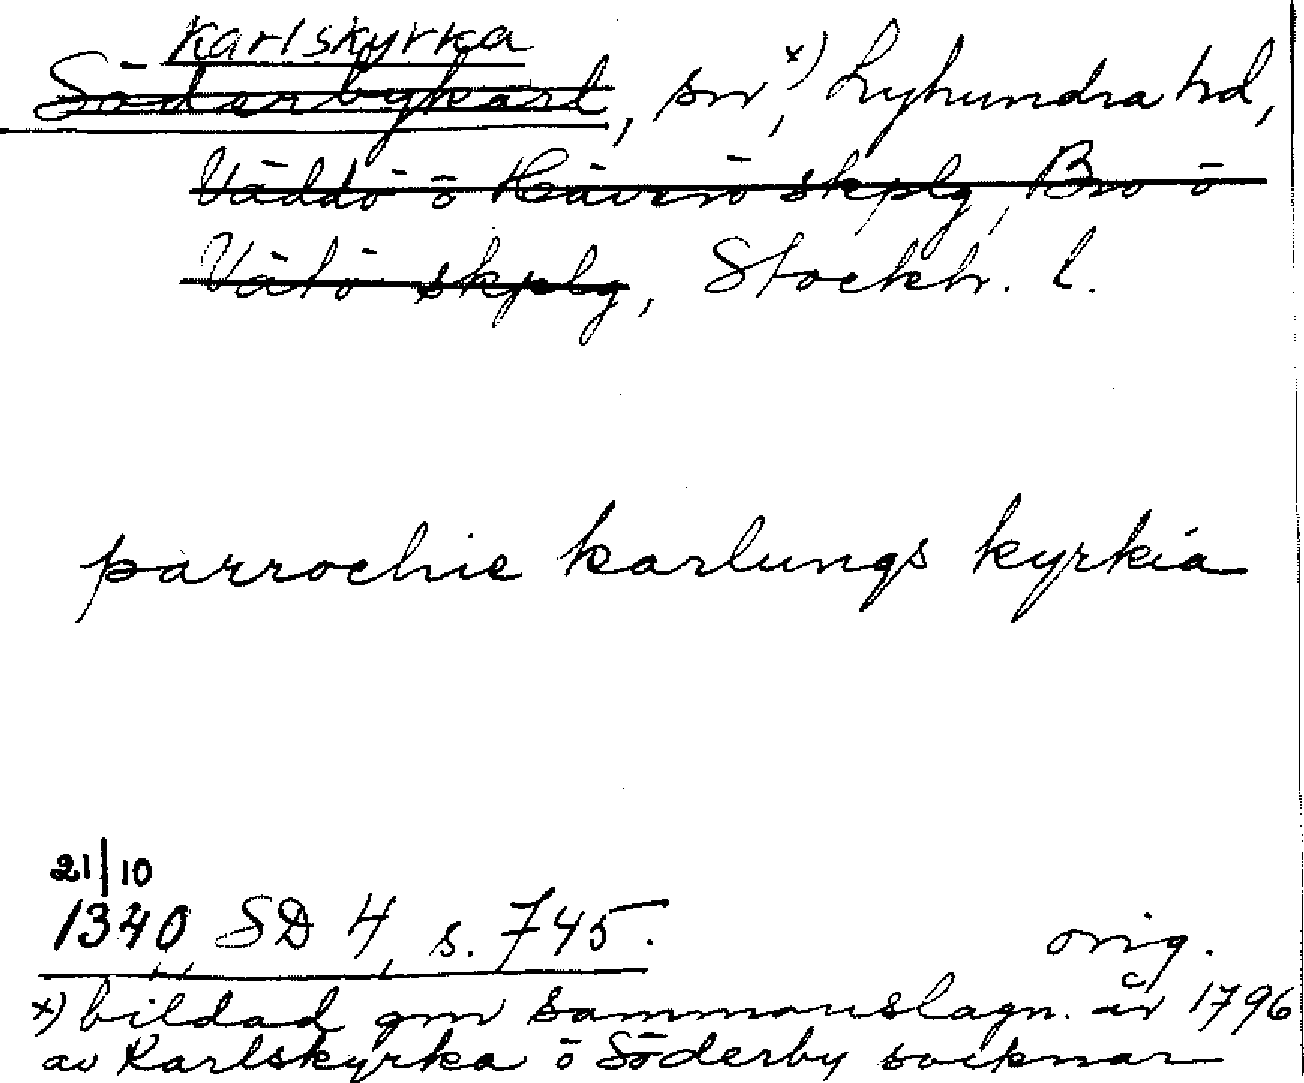 Karlskyrka
Söderbykarl, sn,x) Lyhundra hd,
Väddö o Häverö skplg, Bro o
Vätö skplg, Stockh. l.
parrochie karlungs kyrkia
21/10
1340, SD 4, s. 745.
orig.
x) bildad gm sammanslagn. år 1796
av Karlskyrka o Söderby socknar